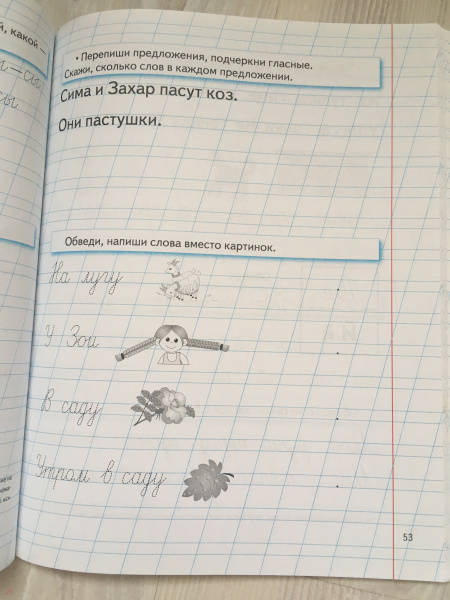 й, какой —
сы
сы
• Перепиши предложения, подчеркни гласные.
Скажи, сколько слов в каждом предложении.
Сима и Захар пасут коз.
Они пастушки.
Обведи, напиши слова вместо картинок.
На лугу
У Зои
В саду
Утром в саду
53